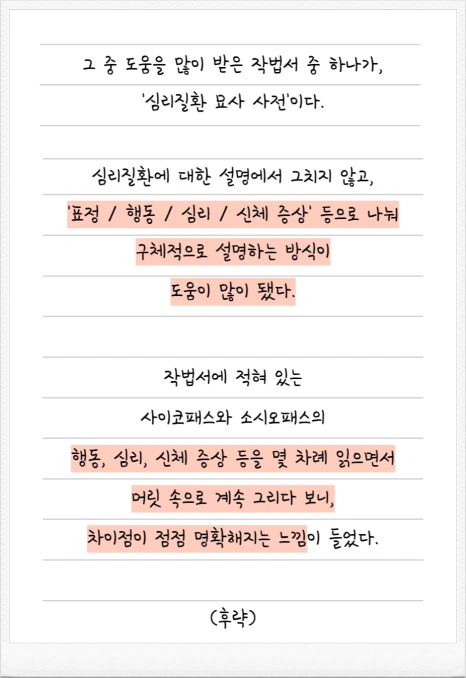 그 중 도움을 많이 받은 작법서 중 하나가,
'심리질환 묘사 사전'이다.
심리질환에 대한 설명에서 그치지 않고,
'표정 / 행동 / 심리 / 신체 증상' 등으로 나눠
구체적으로 설명하는 방식이
도움이 많이 됐다.
작법서에 적혀 있는
사이코패스와 소시오패스의
행동, 심리, 신체 증상 등을 몇 차례 읽으면서
머릿 속으로 계속 그리다 보니,
차이점이 점점 명확해지는 느낌이 들었다.
(후략)